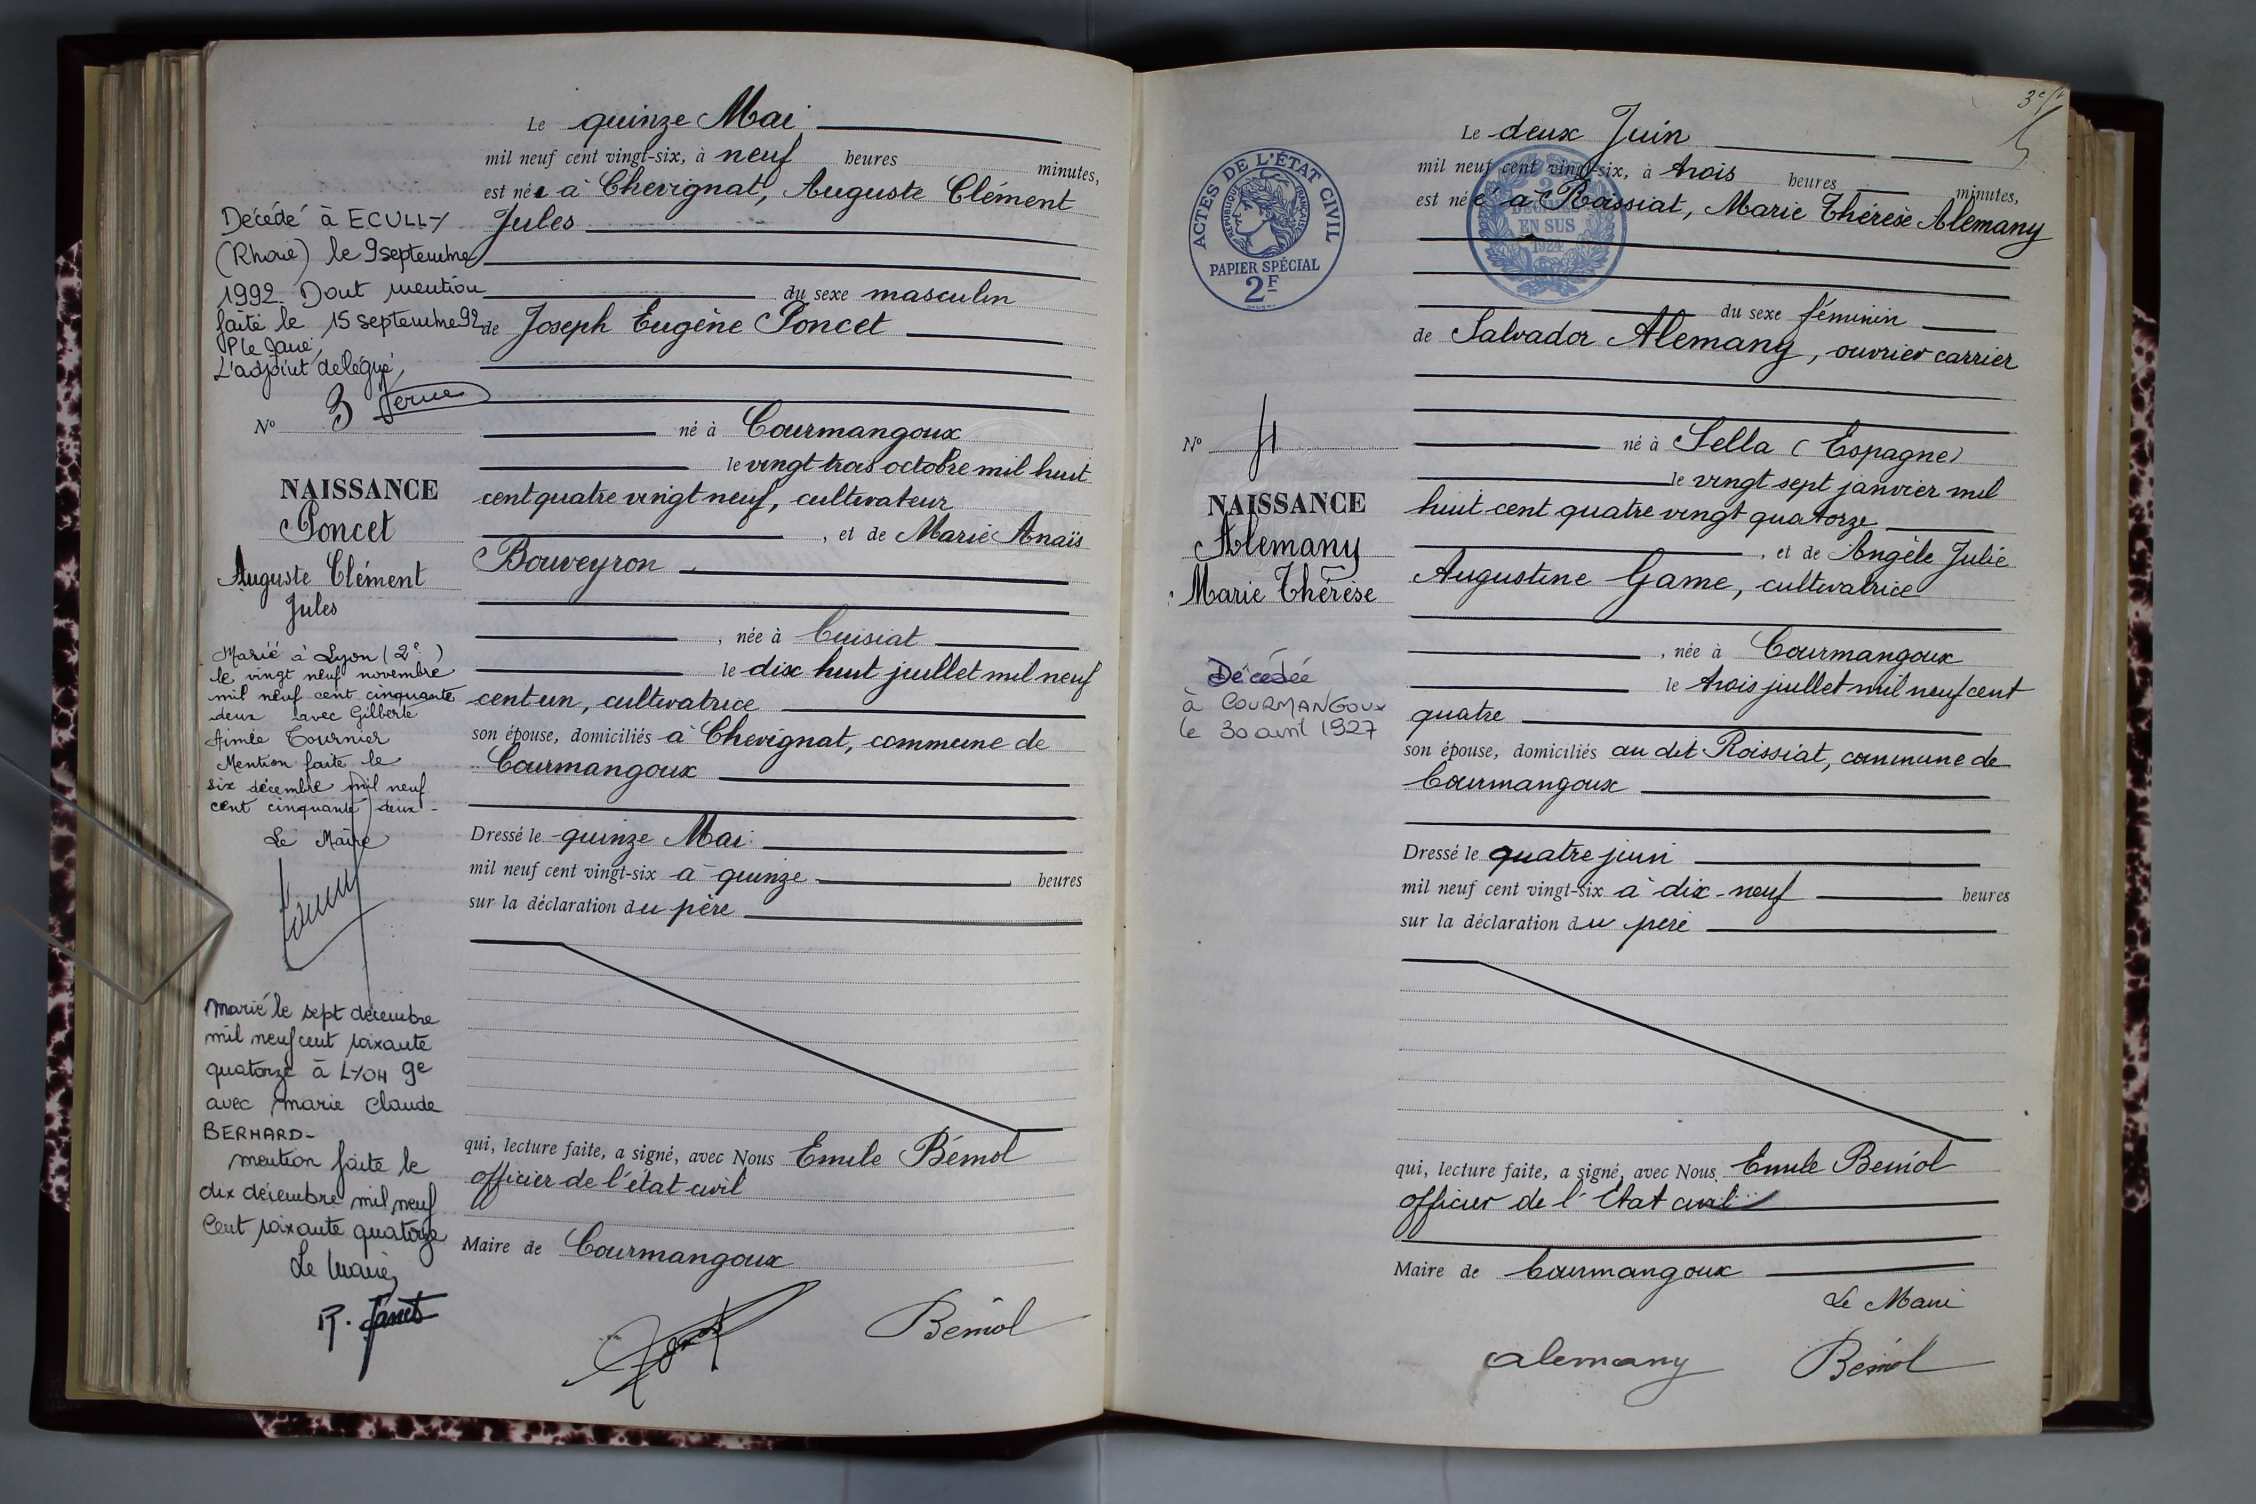 Le quinze Mai
mil neuf cent vingt-six, à neuf heures minutes,
est né à Chevignat, Auguste Clément
Jules
du sexe masculin
de Joseph Eugène Poncet
né à Courmangoux
le vingt trois octobre mil huit
cent quatre vingt neuf, cultivateur
, et de Marie Anaïs
Bouveyron
, née à Cuisiat
le dix huit juillet mil neuf
cent un, cultivatrice
son épouse, domiciliés à Chevignat, commune de
Courmangoux
Dressé le quinze Mai
mil neuf cent vingt-six à quinze heures
sur la déclaration du père
qui, lecture faite, a signé, avec Nous Emile Bémol
officier de l'état civil
Maire de Courmangoux
Bémol
Décédé à ECULLY
(Rhône) le 9 septembre
1992. Dont mention
faite le 15 septembre 92
P le Maire,
L'adjoint délégué,
No 3
NAISSANCE
Poncet
Auguste Clément
Jules
Marié à Lyon (2e)
le vingt neuf novembre
mil neuf cent cinquante
deux avec Gilberte
Aimée Tournier
Mention faite le
six décembre mil neuf
cent cinquante deux-
Le Maire
Marié le sept décembre
mil neuf cent soixante
quatorze à LYON 9e
avec Marie Claude
BERNARD-
mention faite le
dix décembre mil neuf
cent soixante quatorze
Le Maire,
3e/
Le deux Juin
mil neuf cent vingt-six, à trois heures minutes,
est née à Roissiat, Marie Thérèse Alemany
du sexe féminin
de Salvador Alemany, ouvrier carrier
né à Sella (Espagne)
le vingt sept janvier mil
huit cent quatre vingt quatorze
, et de Angèle Julie
Augustine Game, cultivatrice
, née à Courmangoux
le trois juillet mil neuf cent
quatre
son épouse, domiciliés au dit Roissiat, commune de
Courmangoux
Dressé le quatre juin
mil neuf cent vingt-six à dix-neuf heures
sur la déclaration du père
qui, lecture faite, a signé, avec Nous Emile Bémol
officier de l'État civil
Maire de Courmangoux
Le Maire
Alemany Bémol
ACTES DE L'ÉTAT CIVIL
RÉPUBLIQUE FRANÇAISE
PAPIER SPÉCIAL
2F
2
DÉCIMES
EN SUS
1924
No 4
NAISSANCE
Alemany
Marie Thérèse
Décédée
à COURMANGOUX
le 30 avril 1927